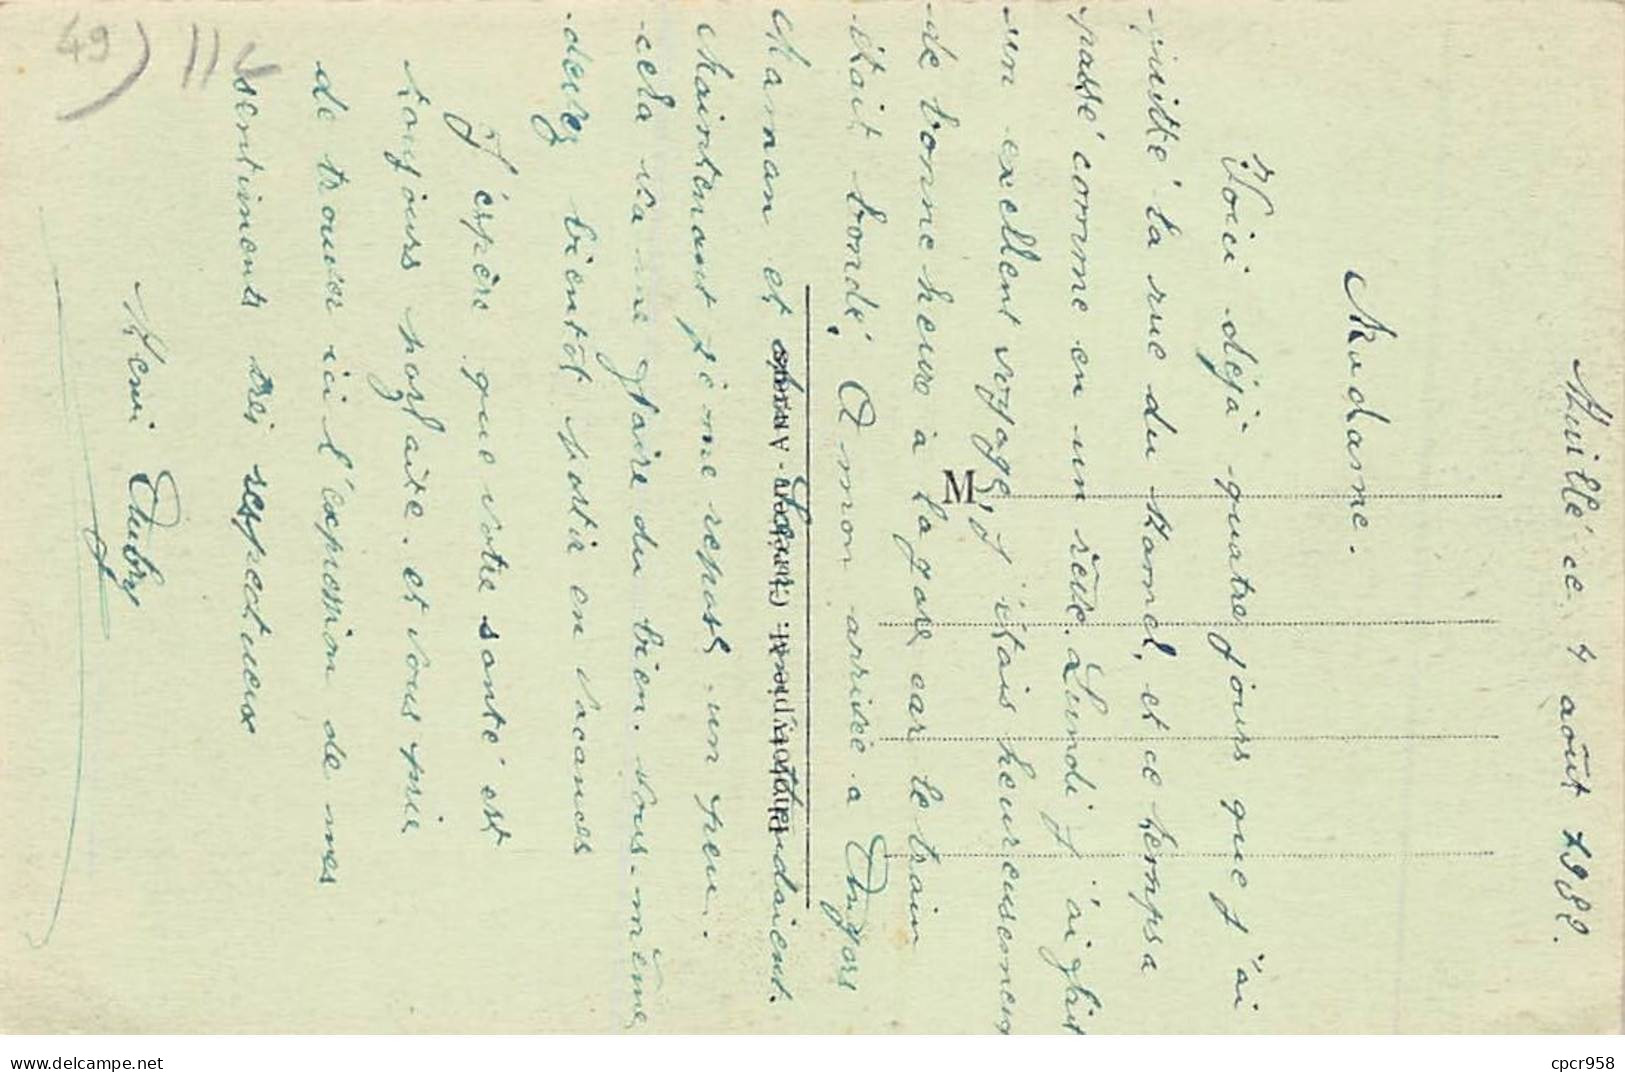 Nuillé ce 4 août 1932.
Madame.
Voici déjà quatre jours que j'ai
quitté la rue du Hamel, et ce temps a
passé comme en un rêve. Lundi j'ai fait
un exellent voyage, j'étais heureusement
de bonne heure à la gare car le train
était bondé. A mon arrivée a Angers
Maman et m'attendaient.
Maintenant je me repose un peu.
cela va me faire du bien. vous-même
devez bientôt partir en vacances
J'éspère que votre santé est
toujours parfaite. et vous prie
de trouver ici l'éxpression de mes
sentiments très respectueux
Henri Aubry
M
49) 11
cpcr958